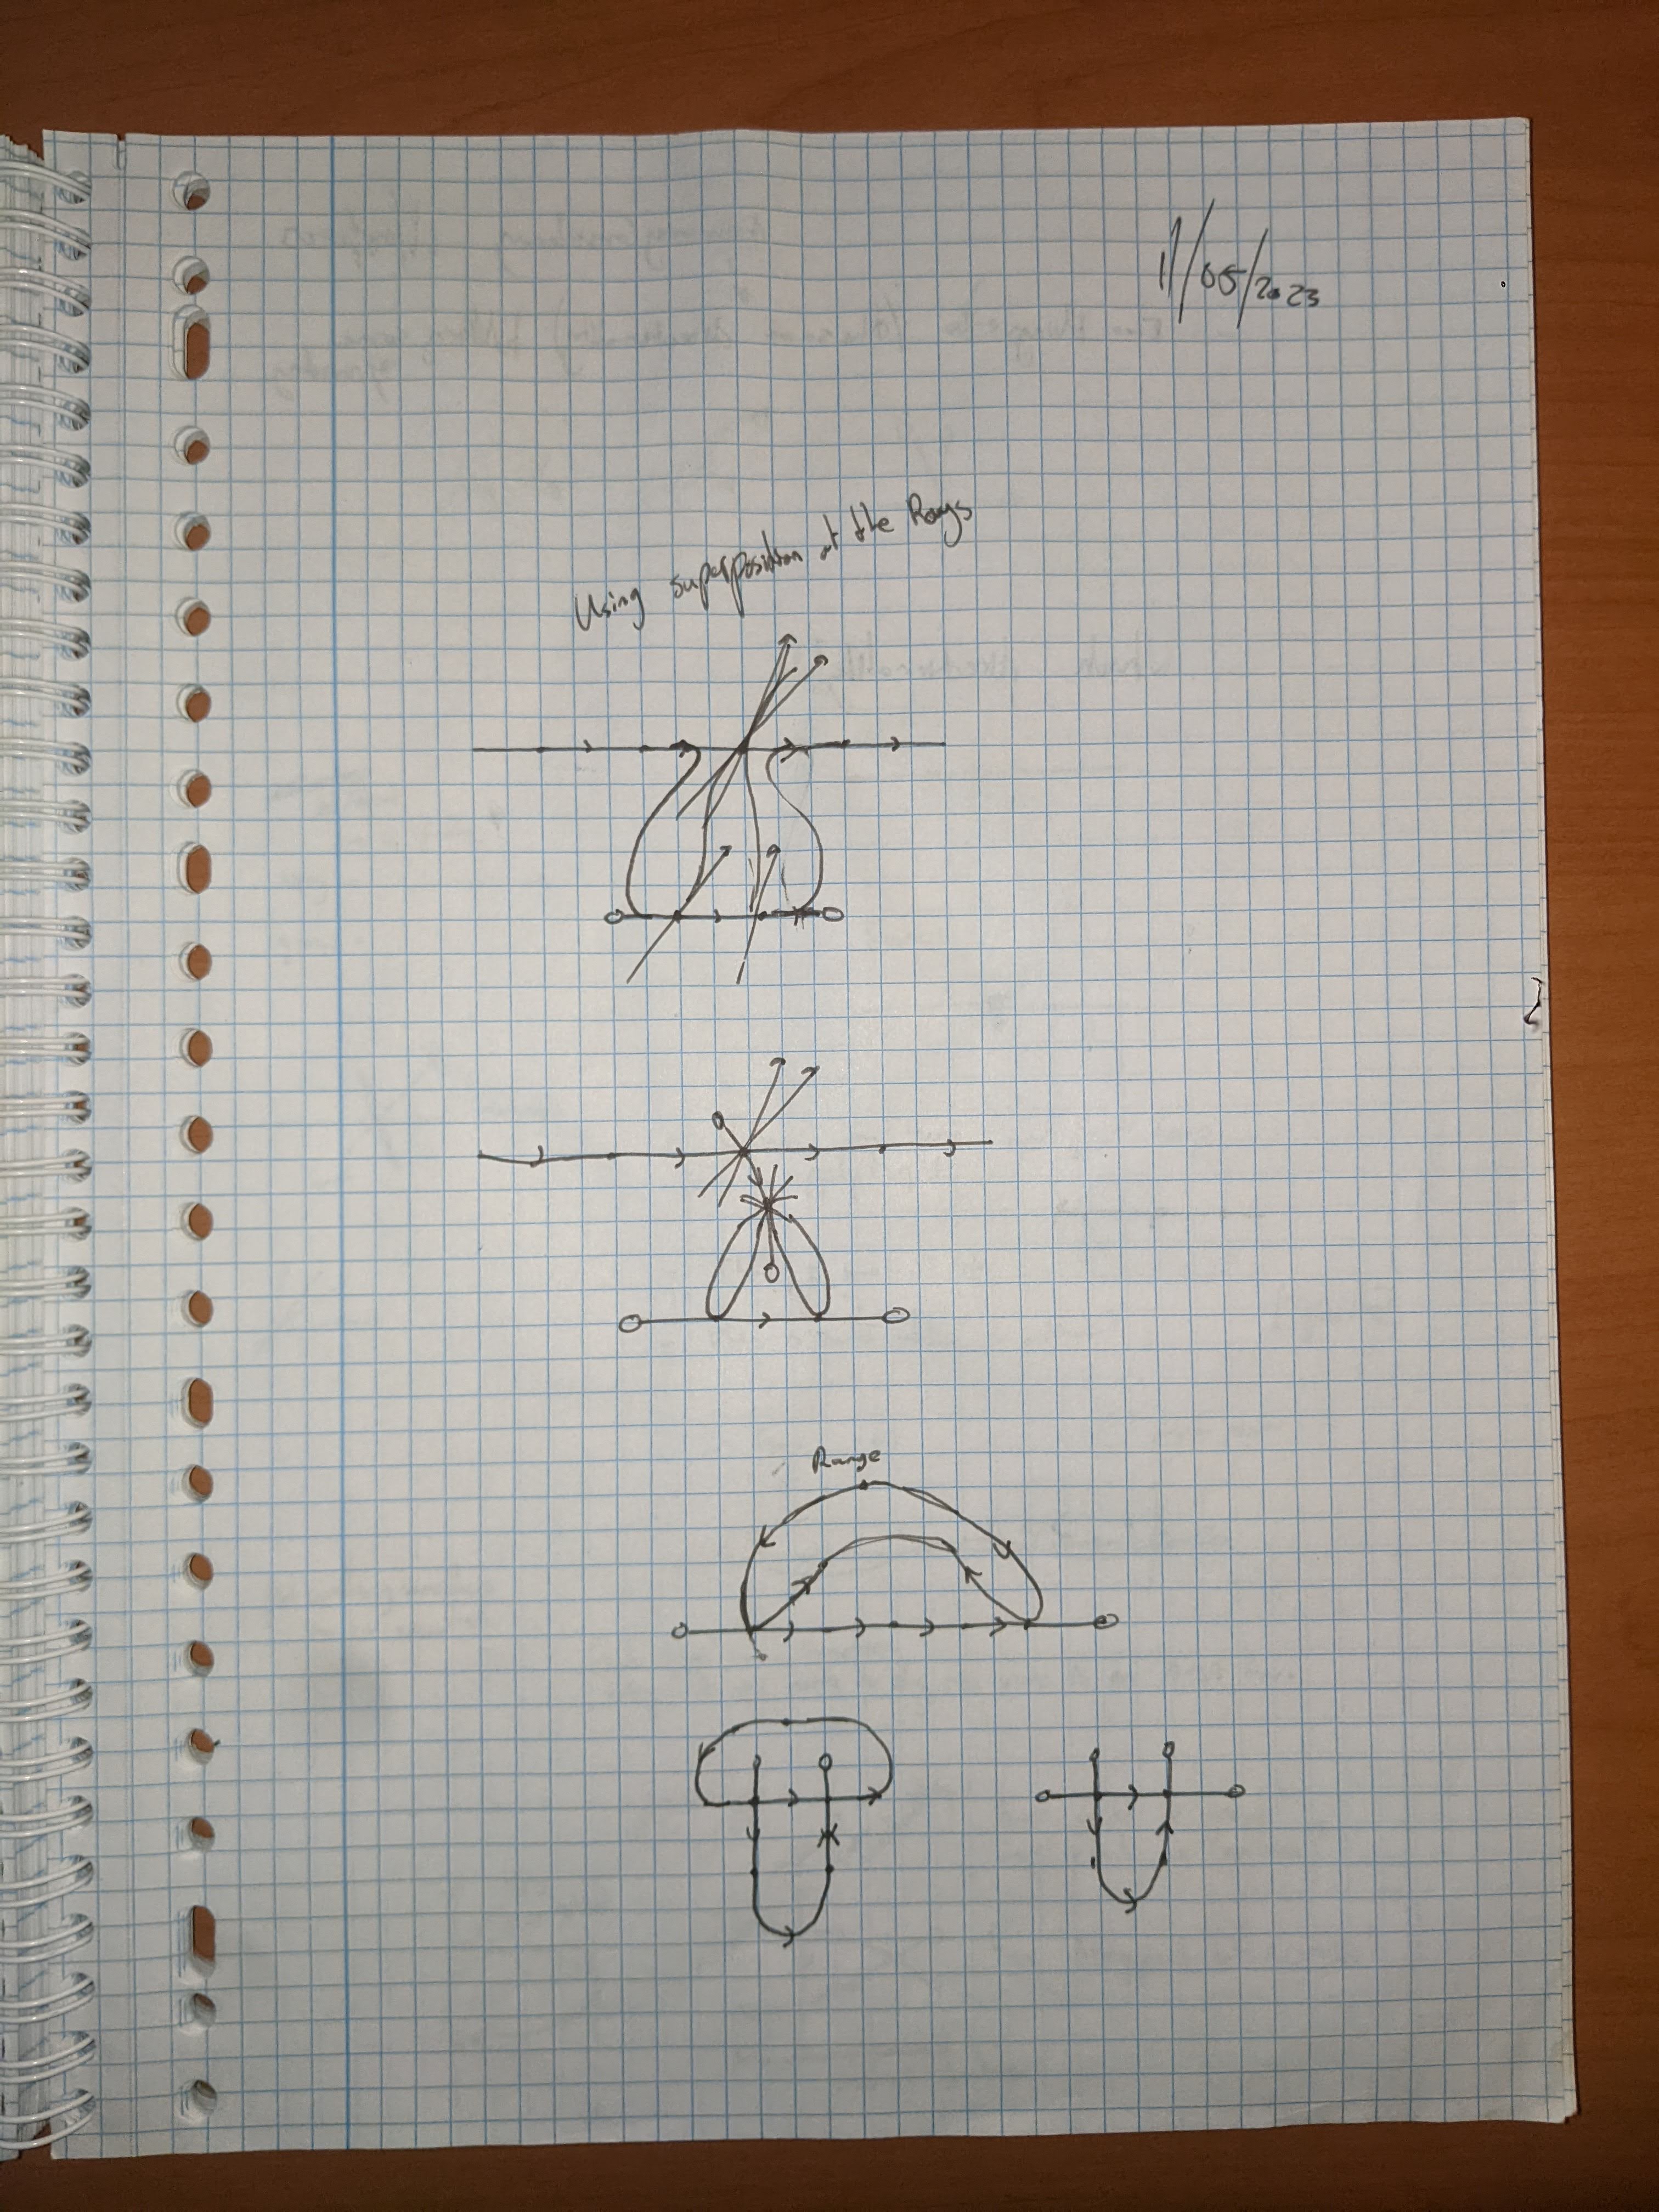 11/05/2023
Using superposition at the Rays
Range